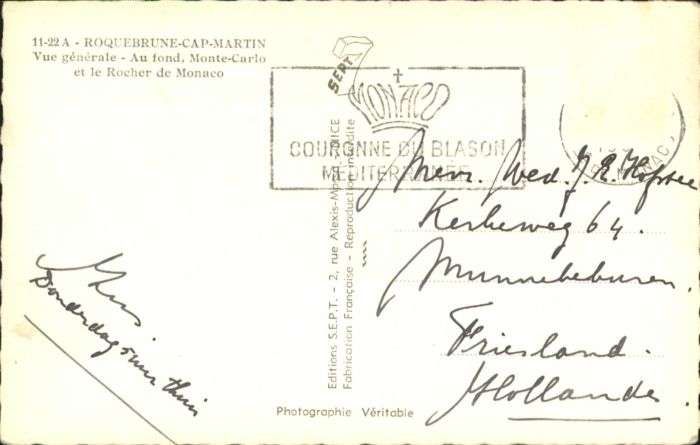 11-22 A - ROQUEBRUNE-CAP-MARTIN
Vue générale - Au fond, Monte-Carlo
et le Rocher de Monaco
SEPT
MONACO
COURONNE DU BLASON
MEDITERRANÉE
Editions S.E.P.T. - 2, rue Alexis-Mossa, NICE
Fabrication Française - Reproduction interdite
Mevr. Wed. J. R. Hofstee
Kerkeweg 64.
Munnekeburen.
Friesland.
Hollande.
Donderdags thuis
Photographie Véritable